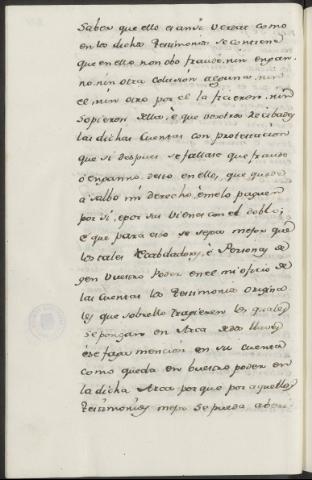 saber que ello es ansi verdad como
en los dichos Testimonios se contiene
que en ello non obo fraude, nin engan-
no, nin otra colusion alguna, nin
el nin otro por el la ficieron, nin
sopieron dello, è que vosotros recibades
las dichas Cuentas con protestacion
que si despues se fallare que fraude
ò enganno desto en ello, que quede
à salbo mi derecho, è me lo paguen
por si, è por sus vienes con el doblo;
è que para esto se sepa mejor que
los tales Recabdadores, è Personas de
gen vuestro Poder en el mi oficio de
las Cuentas los Testimonios origina
les que sobrello tragieren los quales
se pongan en Arca de dos llaves
è se faga mencion en su cuenta
como queda en vuestro poder en
la dicha Arca porque por aquellos
Testimonios mejor se pueda aberi